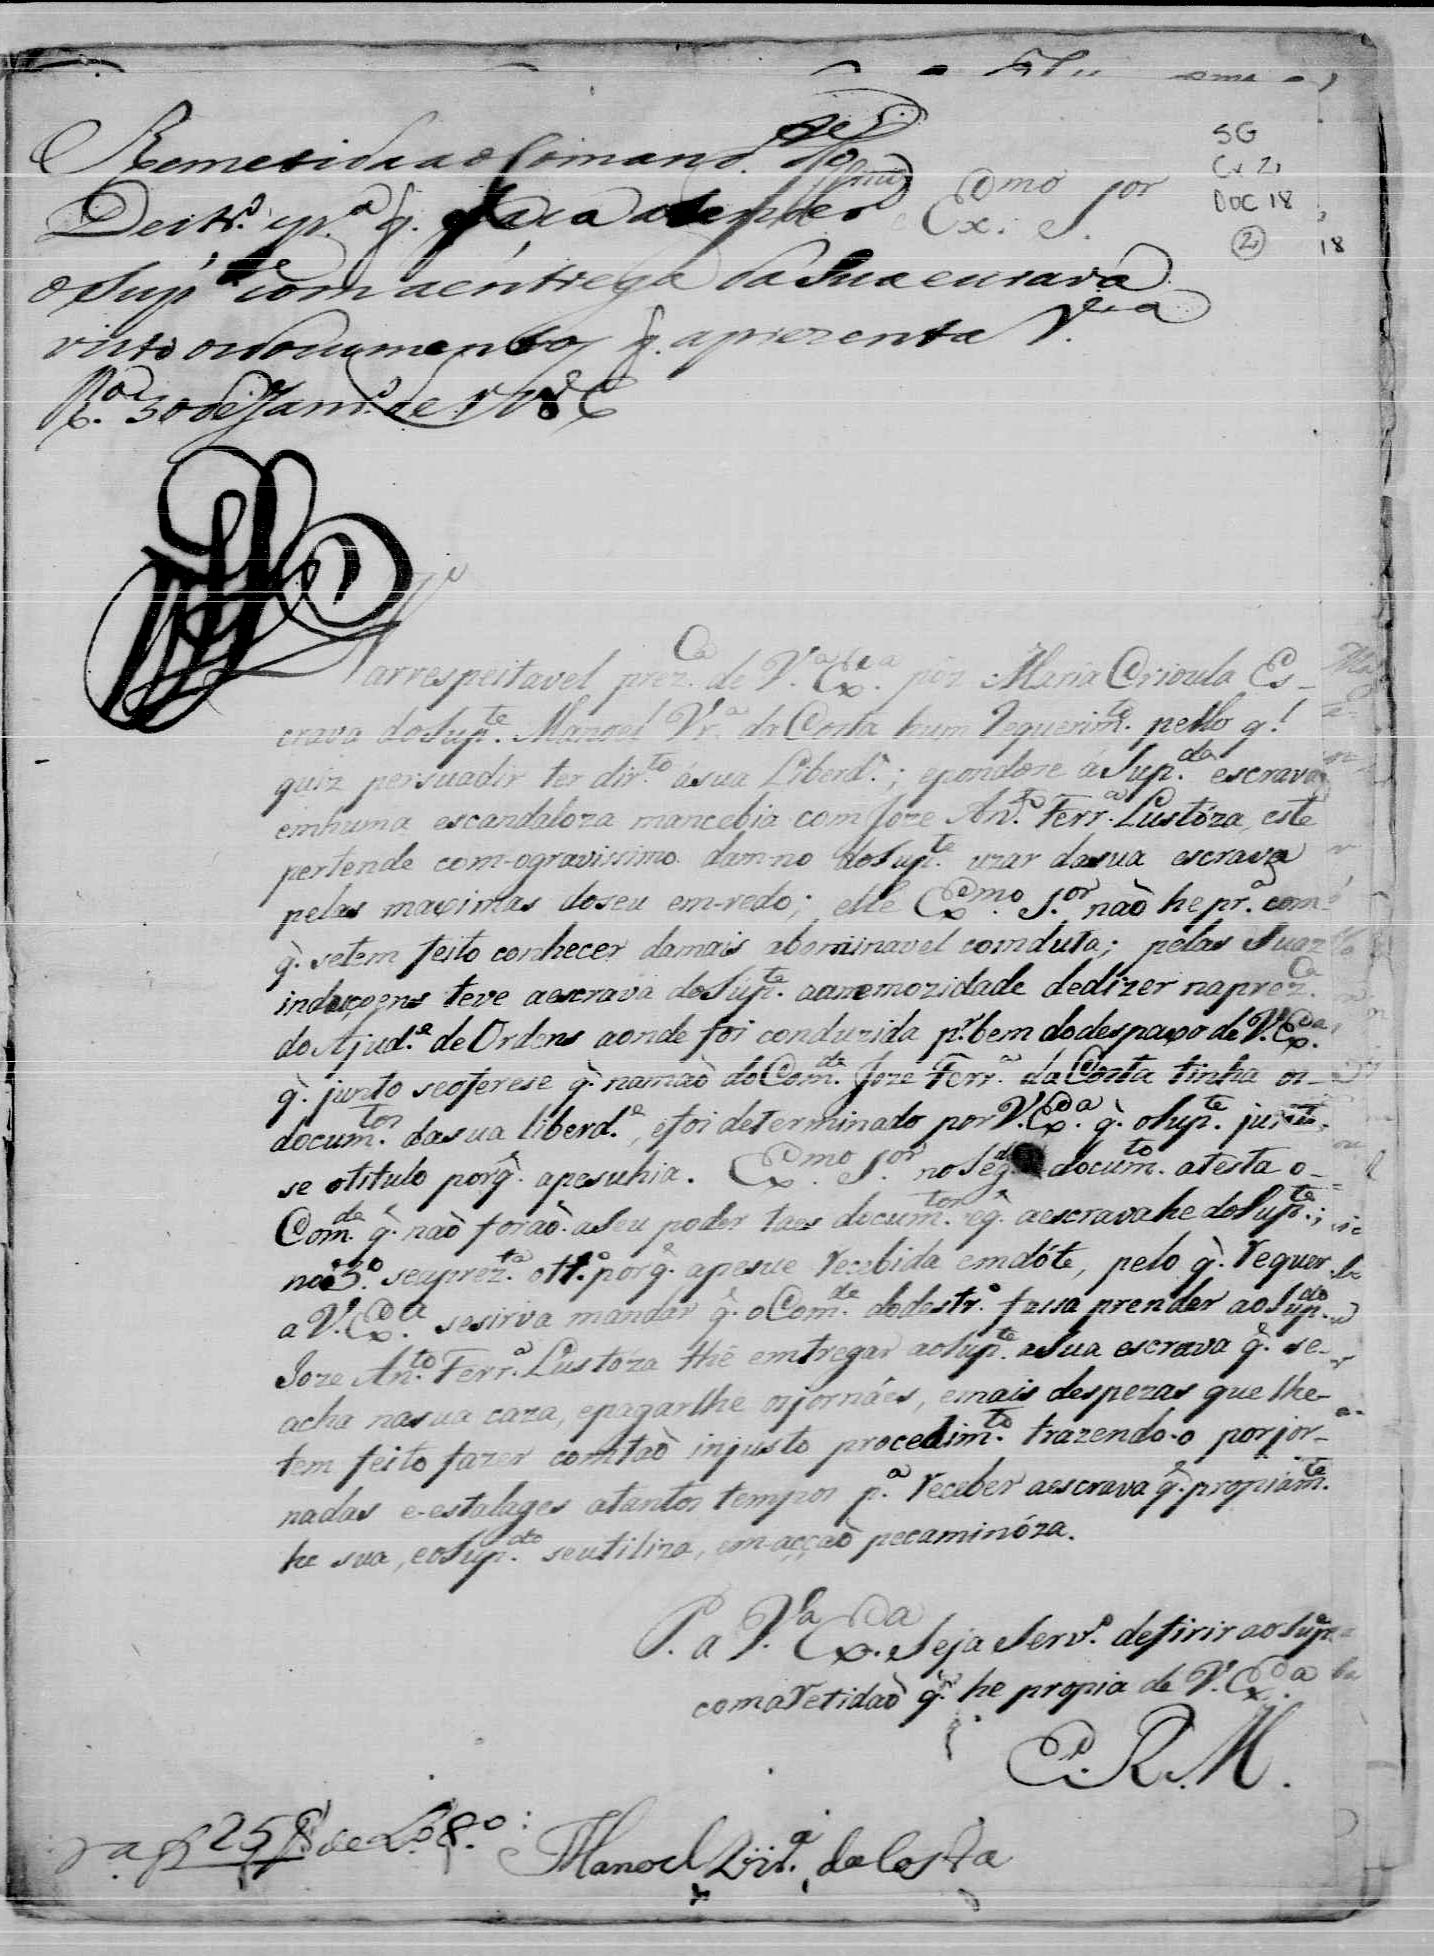 SG
Cx 2
DOC 18
2
18
Remetida ao Comand.^e do
Destr.^o p.^a q. faça
o Sup.^te com a entrega da sua escrava
visto os documentos q. aprezenta V.^a
R.^a 30 de Janr.^o de 1786
Ex.^mo S.^or
Na respeitavel prez.^ca de V.^a Ex.^ca pôz Maria Crioula Es-
crava do Sup.^te Manoel Vr.^a da Costa hum requerim.^to pello q.^l
quiz persuadir ter dir.^to á sua Liberd.^e; epondose á Sup.^da escrava
emhuma escandaloza mancebia com Joze An.^to Ferr.^a Lustóza, este
pertende com-ogravissimo dam-no do Sup.^te uzar dasua escrava
pelas maximas doseu em-redo; elle Ex.^mo S.^or naò he pr.^a com-
q̀. setem feito conhecer damais abominavel comduta; pelas suaz
teve aescrava do Sup.^te dedizer naprez.^ca
do Ajud.^e de Ordens aonde foi conduzida p.^r bem dodespaxo de V. Ex.^ca
q̀. junto seoferese q̀. namaò do Com.^de Joze Ferr.^a da Costa tinha os-
docum.^tos dasua liberd.^e, efoi determinado por V. Ex.^ca q̀. oSup.^te
se otitulo porq̀. apesuhia. Ex.^mo S.^or no Seg.^do docum.^to atesta o-
Com.^de q̀. naò foraò aseu poder taes docum.^tos eq̀. aescravahe doSup.^te;
no 3.^o seaprez.^ta ott.^o porq̀. apesue recebida emdóte, pelo q̀. requer
a V. Ex.^ca sesirva mandar q̀. oCom.^de dodestr.^o fassa prender aoSup.^do
Joze An.^to Ferr.^a Lustóza lhe emtregar aoSup.^te aSua escrava q̀. se-
acha nasua caza, epagarlhe osjornáes, emais despezas que lhe-
tem feito fazer comtaò injusto procedim.^to trazendo-o porjor-
nadas e-estalages atantos tempos p.^a receber aescrava q̀. propiam.^te
he sua, eoSup.^do seutiliza, em-acçaò pecaminóza.
P. a V.^a Ex.^ca Seja Serv.^o defirir aoSup.^e
comaretidaò q̀. he propia de V. Ex.^ca
E. R. M.
Manoel Vir.^a da Costa